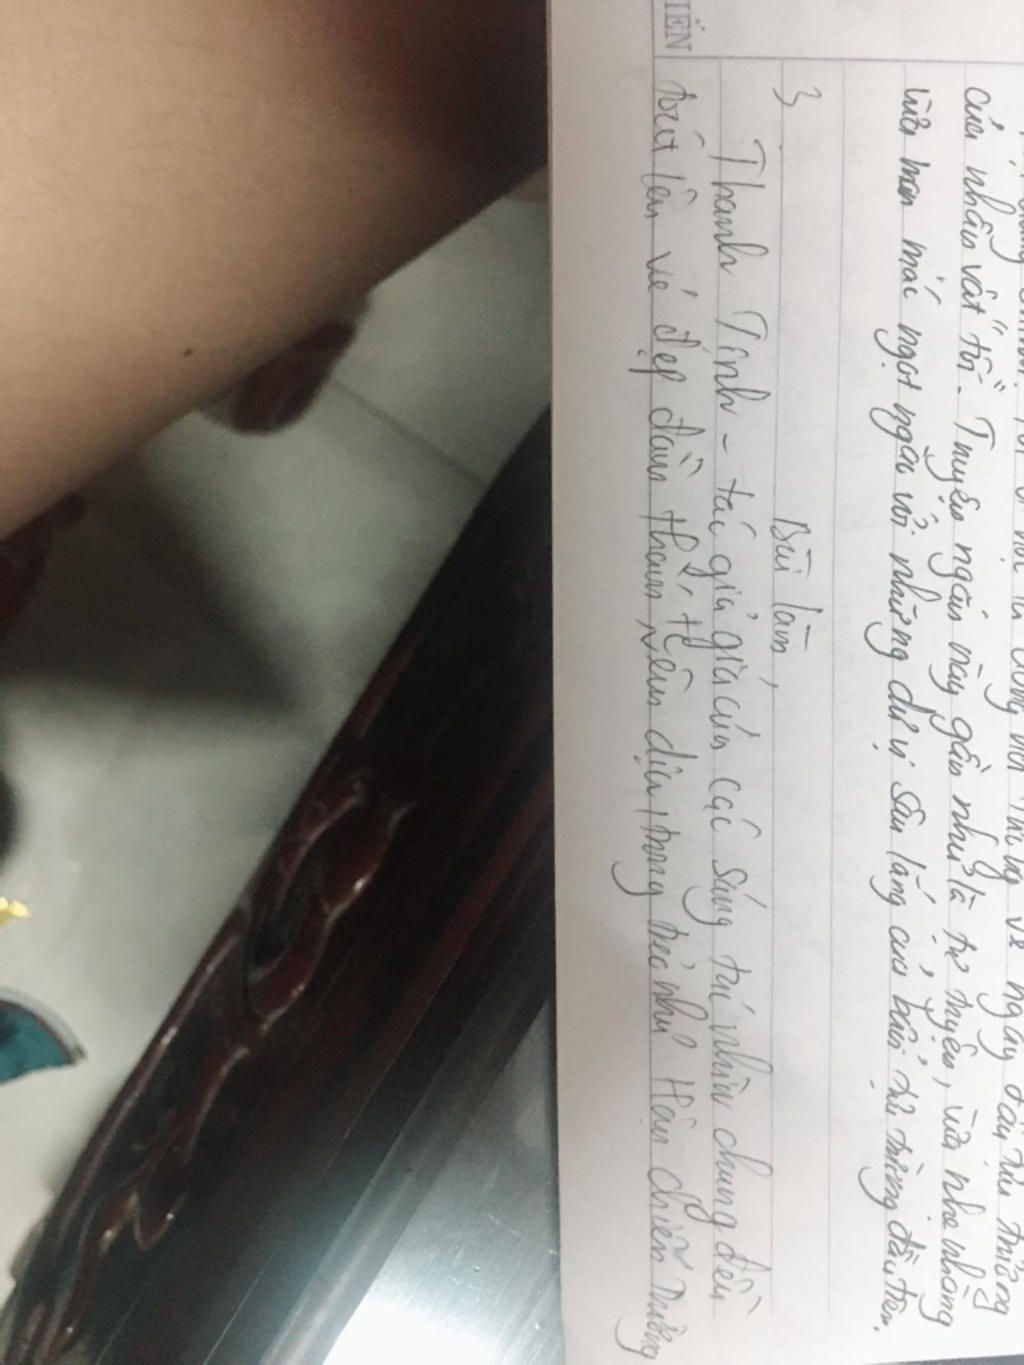 về ngày đầu tiên
của nhân vật "tôi". Truyện ngắn này gần như là tự truyện, vừa nhẹ nhàng
vừa man mác ngọt ngào với những dư vị sâu lắng của buổi tựu trường đầu tiên.
3
Bài làm
Thanh Tịnh - tác giả của các sáng tác nhìn chung đều
toát lên vẻ đẹp đằm thắm, êm dịu, trong trẻo như Hận chiến trường
IẾN